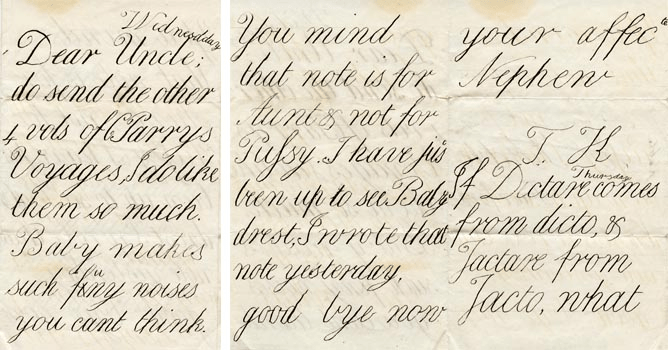 Wednesday
Dear Uncle;
do send the other
4 vols of Parrys
Voyages, I do like
them so much.
Baby makes
such funy noises
you cant think.
You mind
that note is for
Aunt & not for
Pufsy. I have jus
been up to see Baby
drest, I wrote that
note yesterday.
good bye now
your affecte
Nephew
T. H
Thursday
If Dictare comes
from dicto, &
Jactare from
Jacto, what